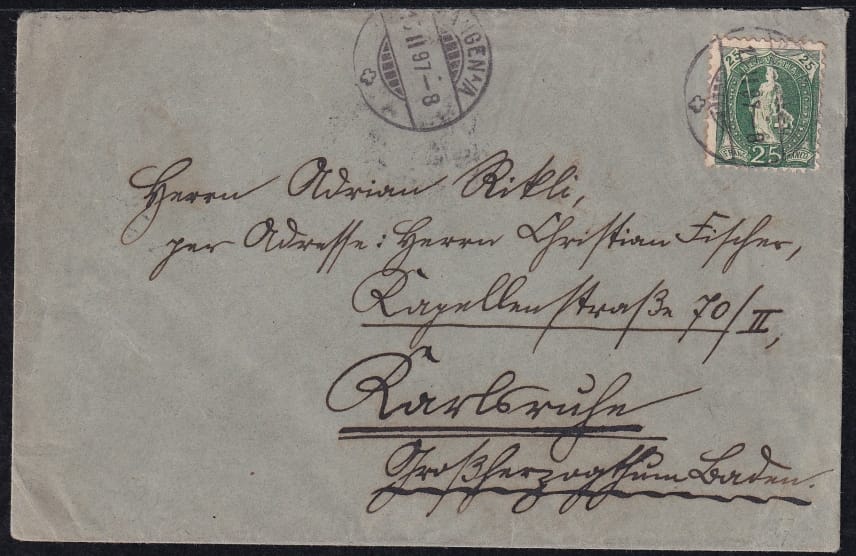 ANGEN A/A
II 97 - 8
25 25
25
Herrn Adrian Rikli,
per Adresse: Herrn Christian Fischer,
Kapellenstraße 70/II,
Karlsruhe
Großherzogthum Baden.